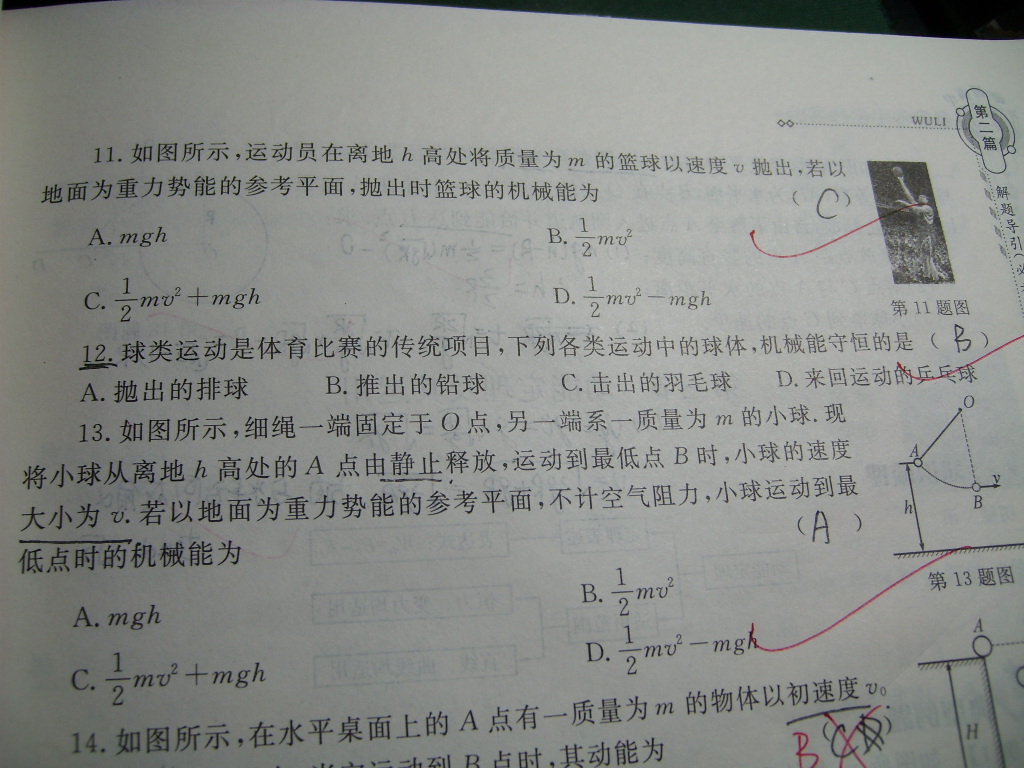 WULI
第二篇
解题导引(
11. 如图所示,运动员在离地 h 高处将质量为 m 的篮球以速度 v 抛出,若以
地面为重力势能的参考平面,抛出时篮球的机械能为 ( C )
A. mgh B. \frac{1}{2}mv²
C. \frac{1}{2}mv²+mgh D. \frac{1}{2}mv²-mgh
第 11 题图
12. 球类运动是体育比赛的传统项目,下列各类运动中的球体,机械能守恒的是 ( B )
A. 抛出的排球 B. 推出的铅球 C. 击出的羽毛球 D. 来回运动的乒乓球
13. 如图所示,细绳一端固定于 O 点,另一端系一质量为 m 的小球. 现
将小球从离地 h 高处的 A 点由静止释放,运动到最低点 B 时,小球的速度
大小为 v. 若以地面为重力势能的参考平面,不计空气阻力,小球运动到最
低点时的机械能为 ( A )
A. mgh B. \frac{1}{2}mv²
C. \frac{1}{2}mv²+mgh D. \frac{1}{2}mv²-mgh
O
A
h
B
v
第 13 题图
14. 如图所示,在水平桌面上的 A 点有一质量为 m 的物体以初速度 v₀
运动到 B 点时,其动能为
B
A
H